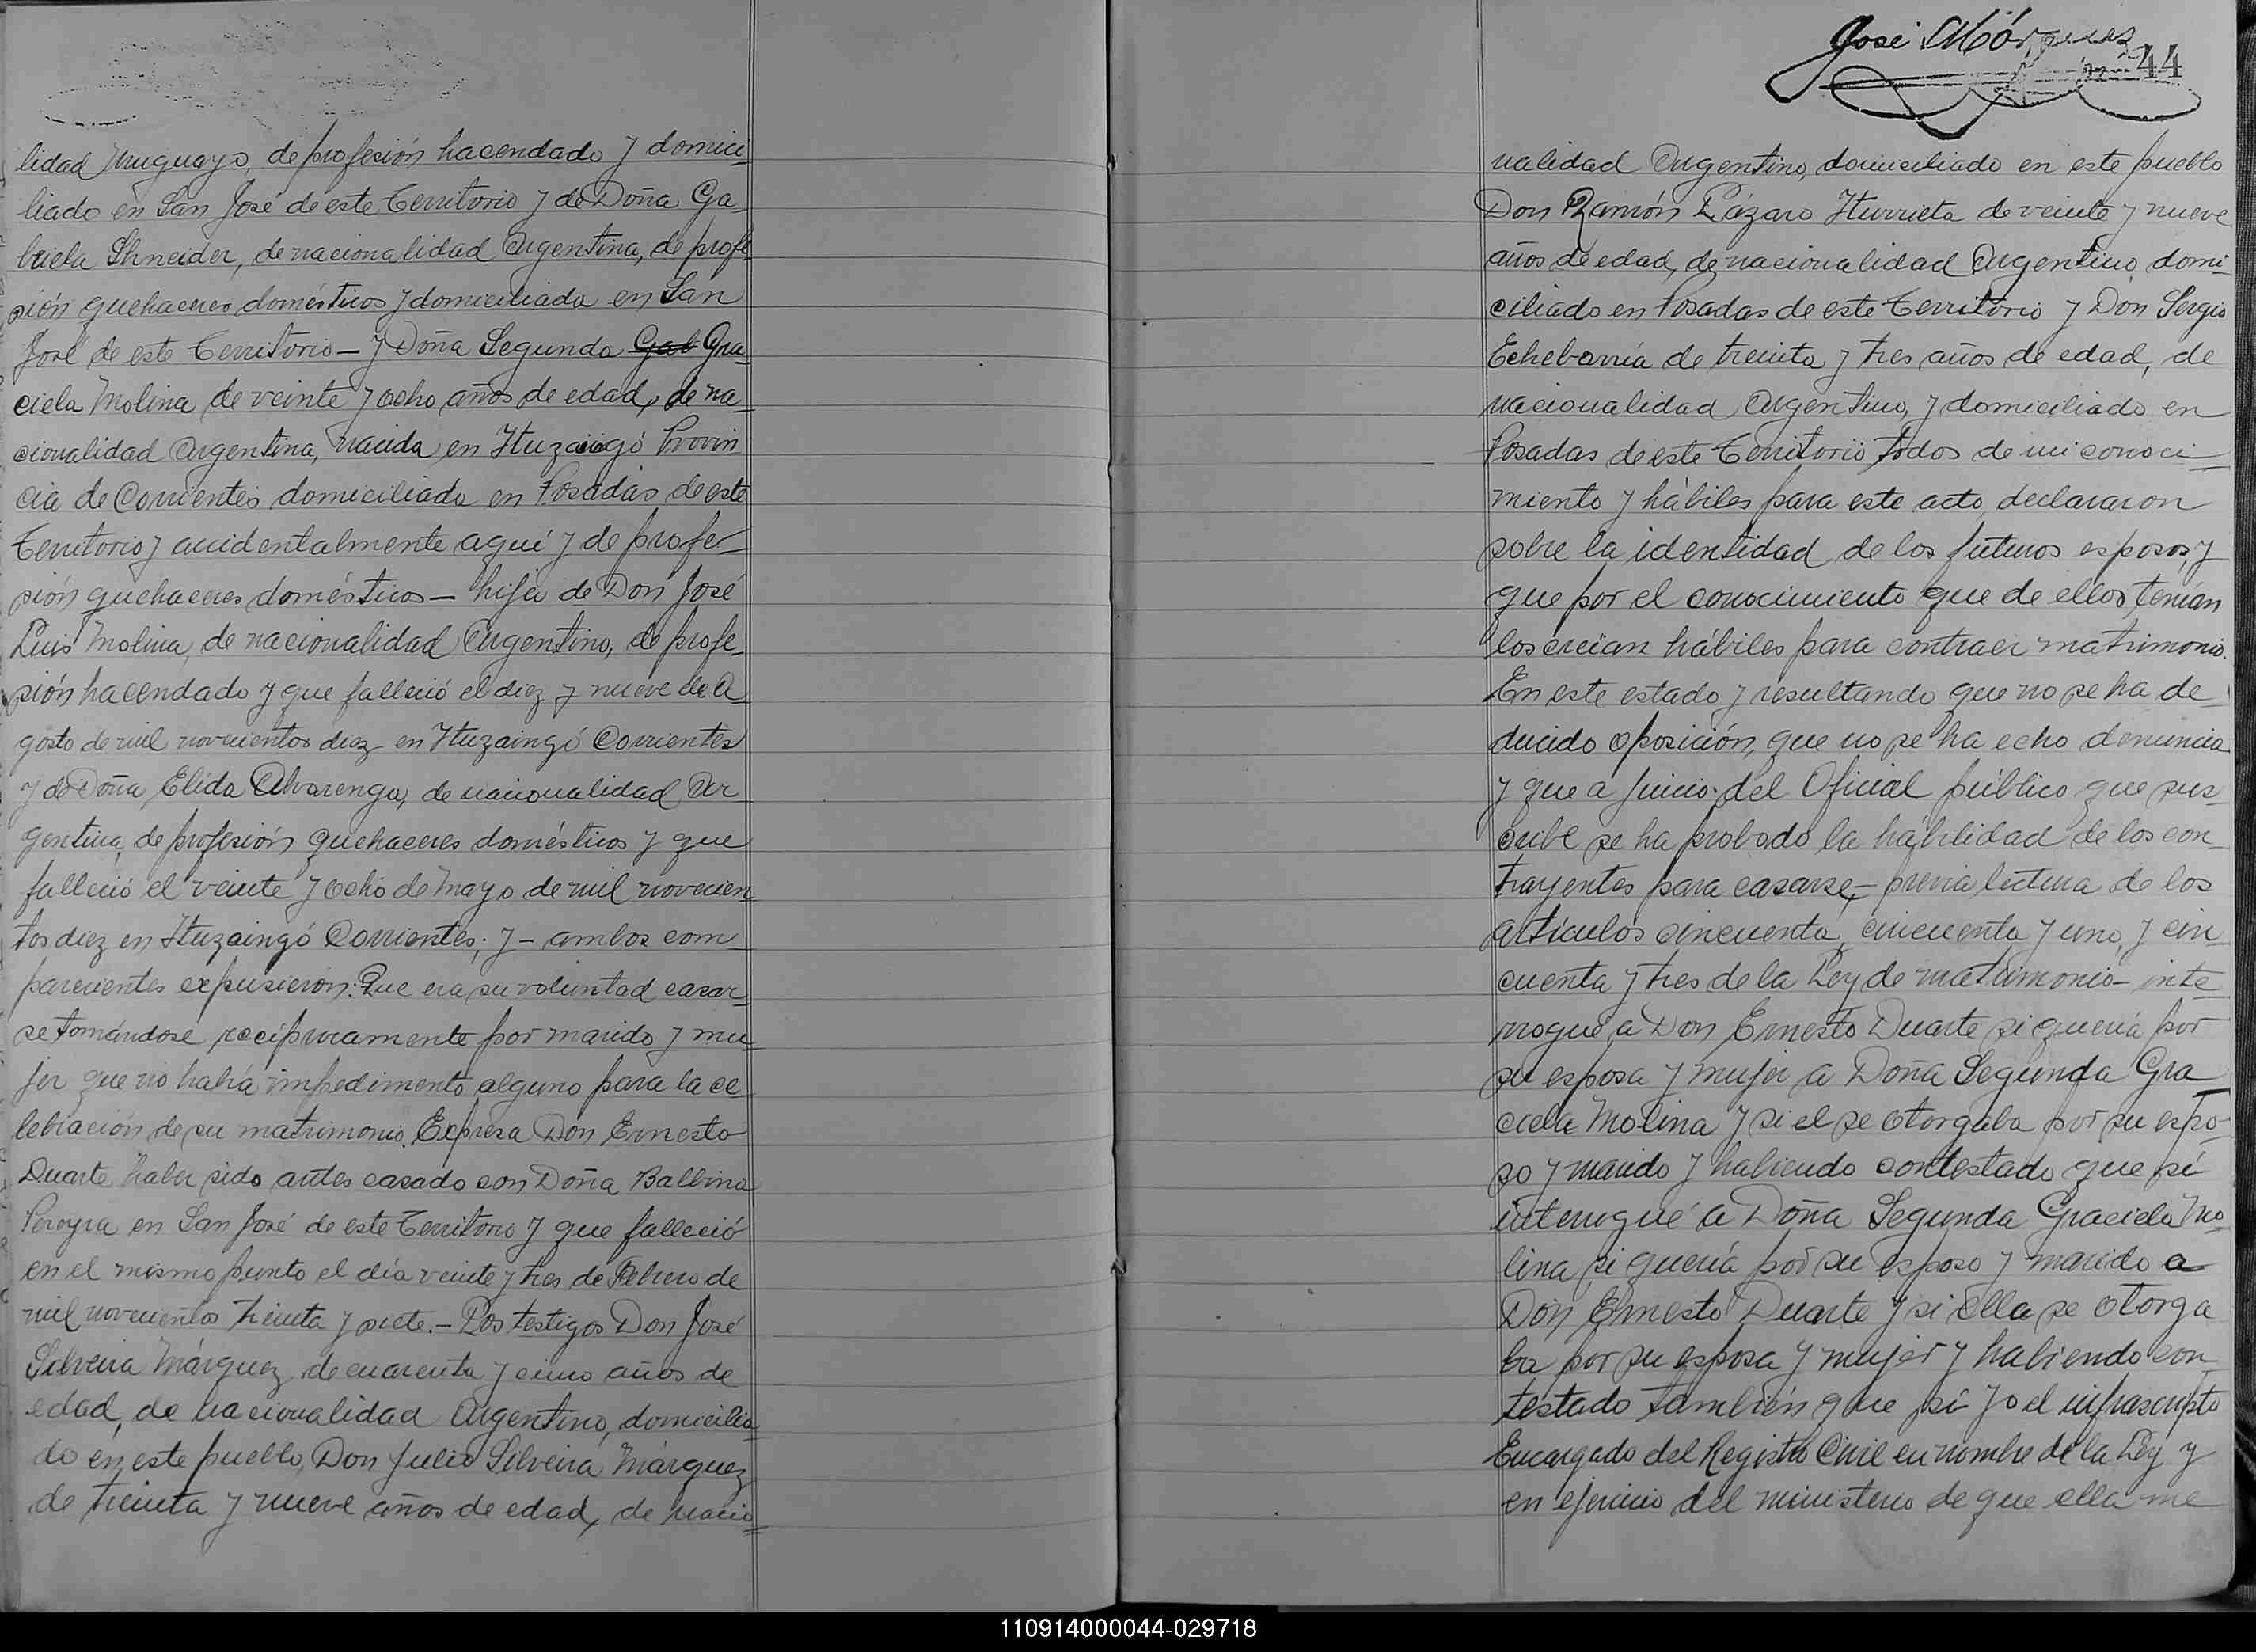 lidad Uruguayo, de profesión hacendado y domici
liado en San José de este Territorio y de Doña Ga
briela Shneider, de nacionalidad Argentina, de profe
sión quehaceres domésticos y domiciliada en San
José de este Territorio — y Doña Segunda Gab Gra
ciela Molina de veinte y ocho años de edad, de na
cionalidad Argentina, nacida en Ituzaingó Provin
cia de Corrientes domiciliada en Posadas de este
Territorio y accidentalmente aquí y de profe
sión quehaceres domésticos — hija de Don José
Luis Molina, de nacionalidad Argentino, de profe
sión hacendado y que falleció el diez y nueve de A
gosto de mil novecientos diez en Ituzaingó Corrientes
y de Doña Elida Alvarenga, de nacionalidad Ar
gentina, de profesión quehaceres domésticos y que
falleció el veinte y ocho de Mayo de mil novecien
tos diez en Ituzaingó Corrientes; y — ambos com
parecientes expusieron: Que era su voluntad casar
se tomándose recíprocamente por marido y mu
jer que no había impedimento alguno para la ce
lebración de su matrimonio. Expresa Don Ernesto
Duarte haber sido antes casado con Doña Balbina
Pereyra en San José de este Territorio y que falleció
en el mismo punto el día veinte y tres de Febrero de
mil novecientos treinta y siete. — Los testigos Don José
Silveira Márquez de cuarenta y cinco años de
edad, de nacionalidad Argentino, domicilia
do en este pueblo, Don Julio Silveira Márquez
de treinta y nueve años de edad, de nacio
José Márquez
44
nalidad Argentino, domiciliado en este pueblo
Don Ramón Lázaro Iturrieta de veinte y nueve
años de edad, de nacionalidad Argentino domi
ciliado en Posadas de este Territorio y Don Sergio
Echebarría de treinta y tres años de edad, de
nacionalidad Argentino, y domiciliado en
Posadas de este Territorio todos de mi conoci
miento y hábiles para este acto declararon
sobre la identidad de los futuros esposos, y
que por el conocimiento que de ellos tenían
los creían hábiles para contraer matrimonio.
En este estado y resultando que no se ha de
ducido oposición, que no se ha echo denuncia
y que a juicio del Oficial público que sus
cribe se ha probado la habilidad de los con
trayentes para casarse, — previa lectura de los
artículos cincuenta, cincuenta y uno, y cin
cuenta y tres de la Ley de matrimonio — inte
rrogué a Don Ernesto Duarte si quería por
su esposa y mujer a Doña Segunda Gra
ciela Molina y si el se otorgaba por su espo
so y marido y habiendo contestado que sí
interrogué a Doña Segunda Graciela Mo
lina si quería por su esposo y marido a
Don Ernesto Duarte y si ella se otorga
ba por su esposa y mujer y habiendo con
testado también que sí yo el infrascripto
Encargado del Registro Civil en nombre de la Ley y
en ejercicio del ministerio de que ella me
110914000044-029718